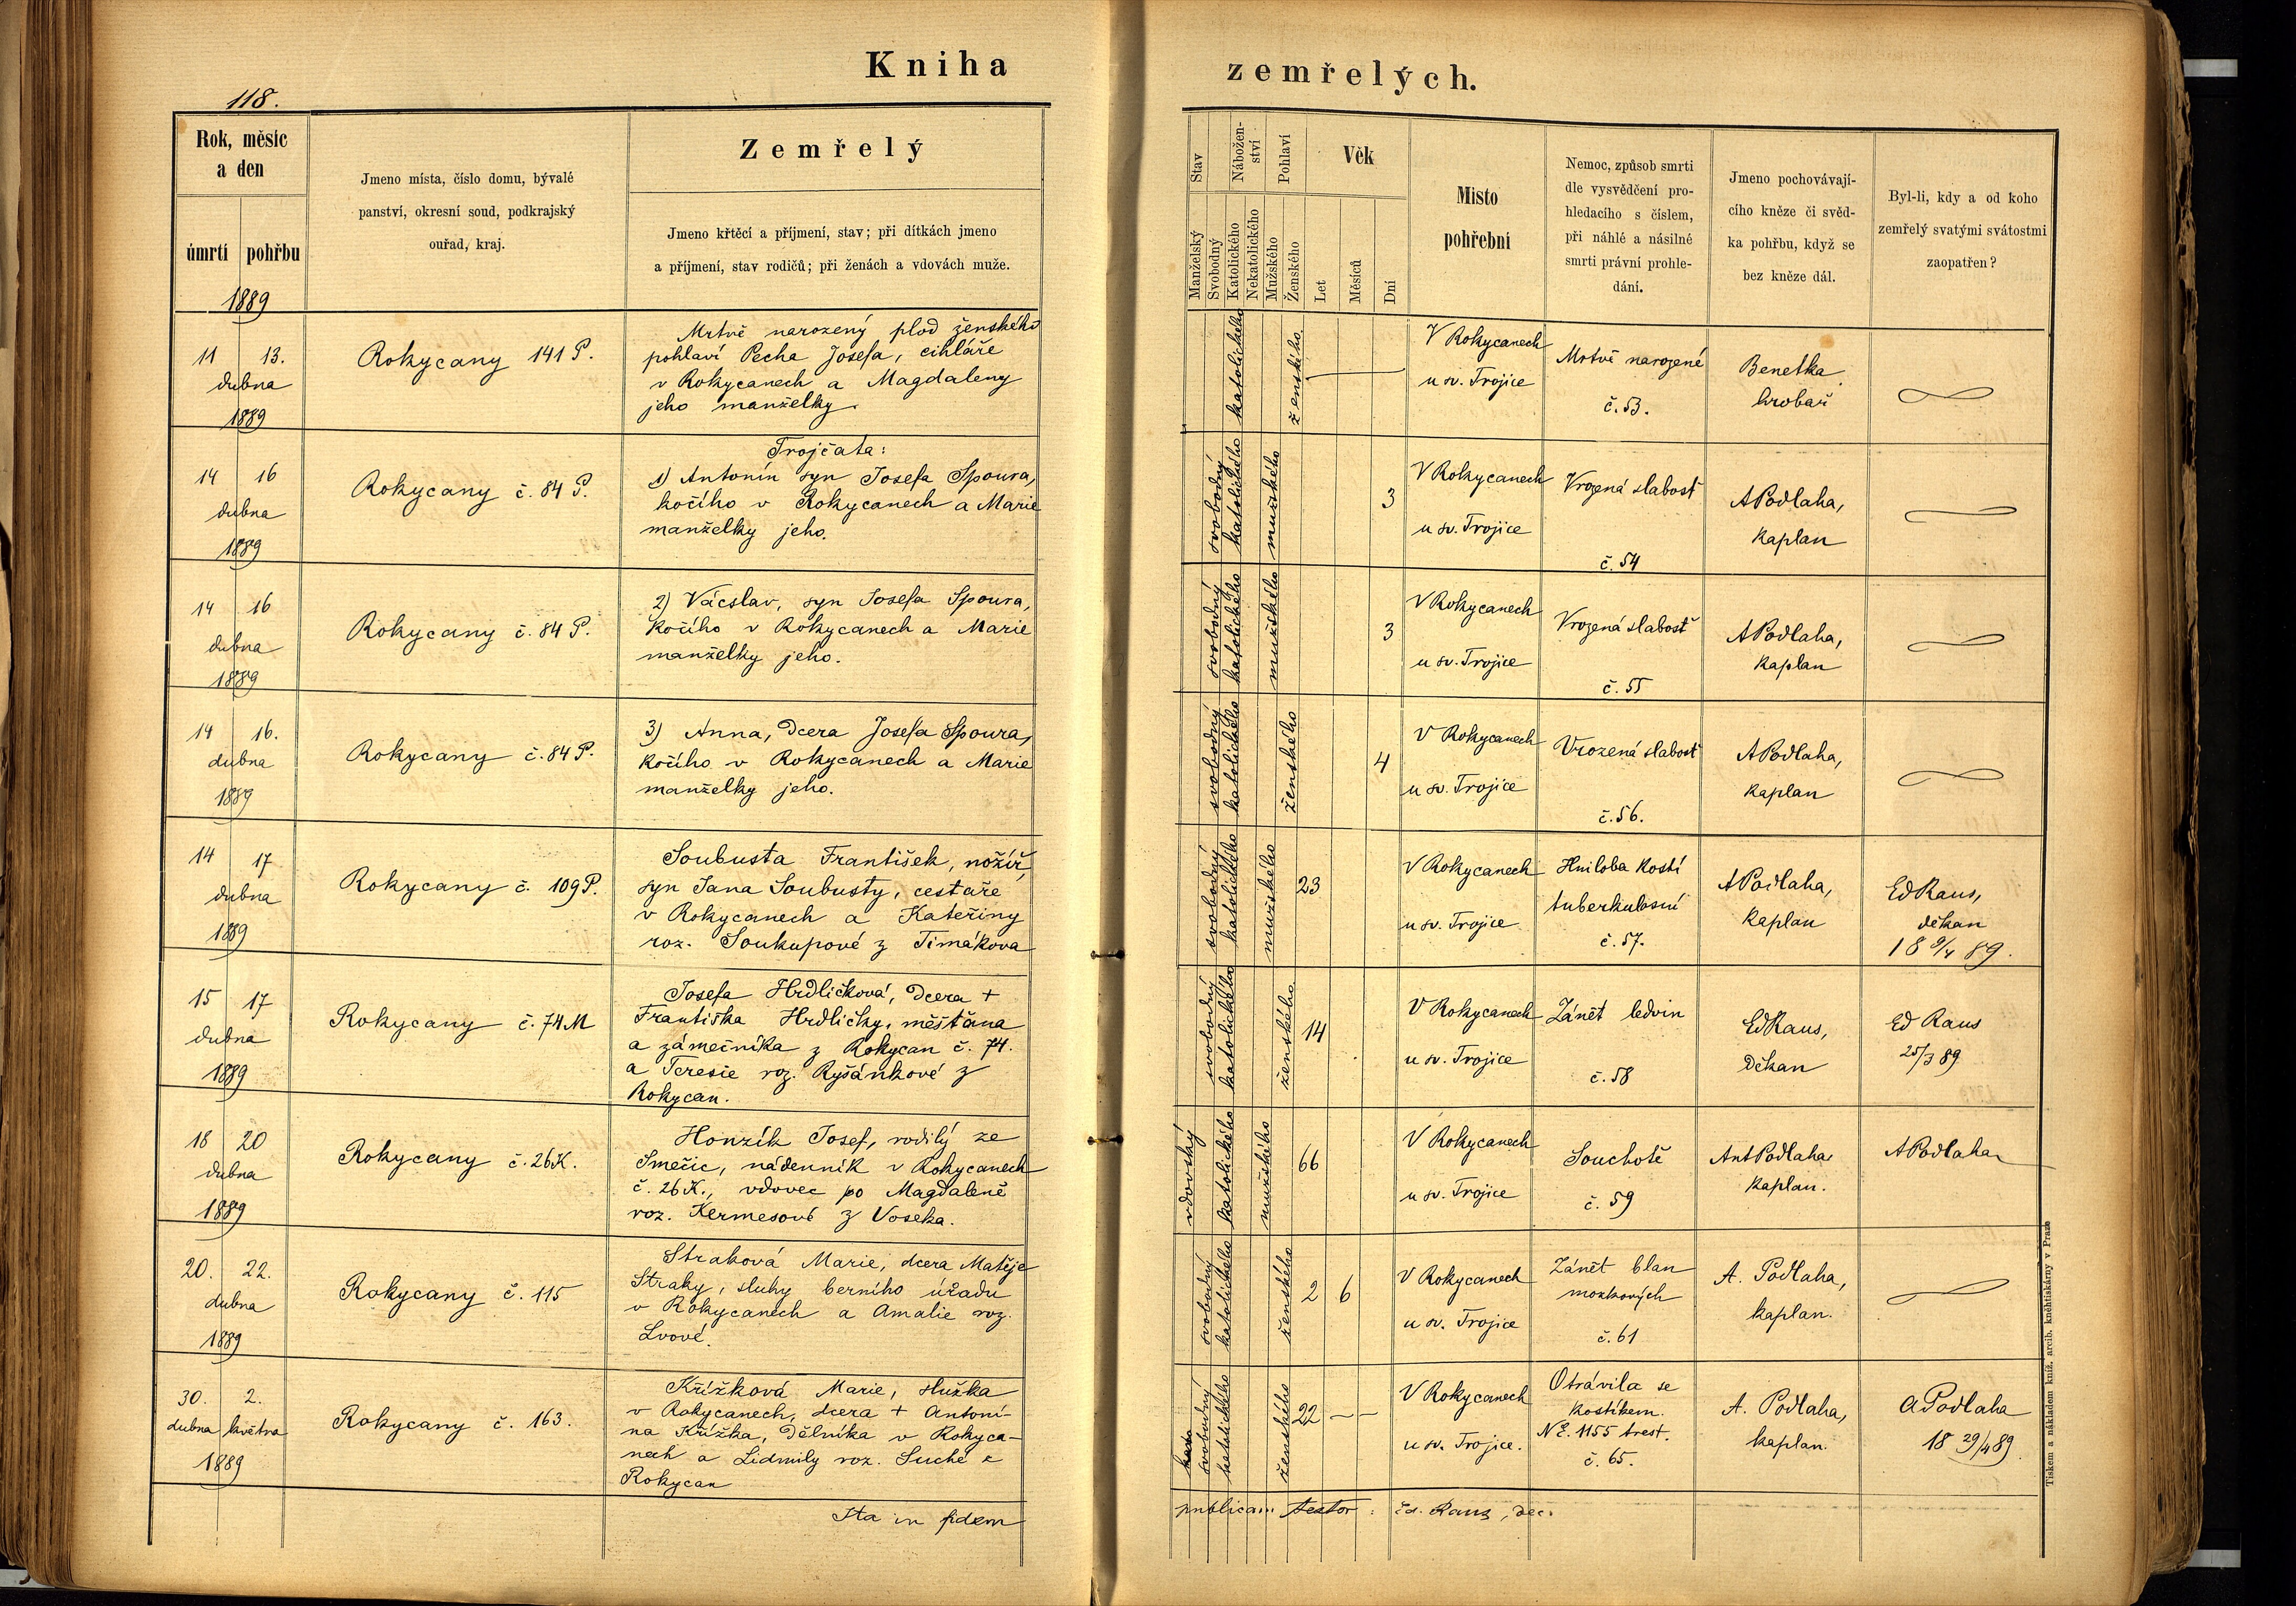 Kniha zemřelých.
118.
Rok, měsíc
a den
úmrtí pohřbu
1889
Jmeno místa, číslo domu, bývalé
panství, okresní soud, podkrajský
ouřad, kraj.
Zemřelý
Jmeno křtěcí a příjmení, stav; při dítkách jmeno
a příjmení, stav rodičů; při ženách a vdovách muže.
Stav
Manželský
Svobodný
Nábožen-
ství
Katolického
Nekatolického
Pohlaví
Mužského
Ženského
Věk
Let
Měsíců
Dní
Místo
pohřební
Nemoc, způsob smrti
dle vysvědčení pro-
hledacího s číslem,
při náhlé a násilné
smrti právní prohle-
dání.
Jmeno pochovávají-
cího kněze či svěd-
ka pohřbu, když se
bez kněze dál.
Byl-li, kdy a od koho
zemřelý svatými svátostmi
zaopatřen?
11 13.
dubna
1889
Rokycany 141 P.
Mrtvě narozený plod ženského
pohlaví Pecha Josefa, cihláře
v Rokycanech a Magdaleny
jeho manželky.
katolického
ženského
V Rokycanech
u sv. Trojice
Mrtvě narozené
č. 53.
Benetka
hrobař
14 16
dubna
1889
Rokycany č. 84 P.
Trojčata:
1) Antonín syn Josefa Spoura,
kočího v Rokycanech a Marie
manželky jeho.
svobodný
katolického
mužského
3
V Rokycanech
u sv. Trojice
Vrozená slabost
č. 54
A Podlaha,
kaplan
14 16
dubna
1889
Rokycany č. 84 P.
2) Vácslav, syn Josefa Spoura,
kočího v Rokycanech a Marie
manželky jeho.
svobodný
katolického
mužského
3
V Rokycanech
u sv. Trojice
Vrozená slabost
č. 55
A Podlaha,
kaplan
14 16.
dubna
1889
Rokycany č. 84 P.
3) Anna, dcera Josefa Spoura,
kočího v Rokycanech a Marie
manželky jeho.
svobodný
katolického
ženského
4
V Rokycanech
u sv. Trojice
Vrozená slabost
č. 56.
A Podlaha,
kaplan
14 17
dubna
1889
Rokycany č. 109 P.
Soubusta František, nožíř,
syn Jana Soubusty, cestaře
v Rokycanech a Kateřiny
roz. Soukupové z Timákova
svobodný
katolického
mužského
23
V Rokycanech
u sv. Trojice
Hniloba kostí
tuberkulosní
č. 57.
A Podlaha,
kaplan
Ed Raus,
děkan
18 9/4 89.
15 17
dubna
1889
Rokycany č. 74 M
Josefa Hrdličková, dcera +
Františka Hrdličky, měšťana
a zámečníka z Rokycan č. 74.
a Teresie roz. Ryšánkové z
Rokycan.
svobodný
katolického
ženského
14
V Rokycanech
u sv. Trojice
Zánět ledvin
č. 58
Ed Raus,
děkan
Ed Raus
25/3 89
18 20
dubna
1889
Rokycany č. 26 K.
Honzík Josef, rodilý ze
Smečic, nádenník v Rokycanech
č. 26 K., vdovec po Magdaleně
roz. Kermesové z Voseka.
vdovský
katolického
mužského
66
V Rokycanech
u sv. Trojice
Souchotě
č. 59
Ant Podlaha
kaplan.
A Podlaha
20. 22.
dubna
1889
Rokycany č. 115
Straková Marie, dcera Matěje
Straky, sluhy berního úřadu
v Rokycanech a Amalie roz.
Lvové.
svobodný
katolického
ženského
2 6
V Rokycanech
u sv. Trojice
Zánět blan
mozkových
č. 61
A. Podlaha,
kaplan.
30. 2.
dubna května
1889
Rokycany č. 163.
Křížková Marie, služka
v Rokycanech, dcera + Antoní-
na Křížka, dělníka v Rokyca-
nech a Lidmily roz. Suché z
Rokycan
svobodný
katolického
ženského
22 — —
V Rokycanech
u sv. Trojice.
Otrávila se
kostíkem.
N E. 1155 trest.
č. 65.
A. Podlaha,
kaplan.
A Podlaha
18 29/4 89.
Ita in fidem publicam testor: Ed. Raus, dec.
Tiskem a nákladem kníž. arcib. kněhtiskárny v Praze